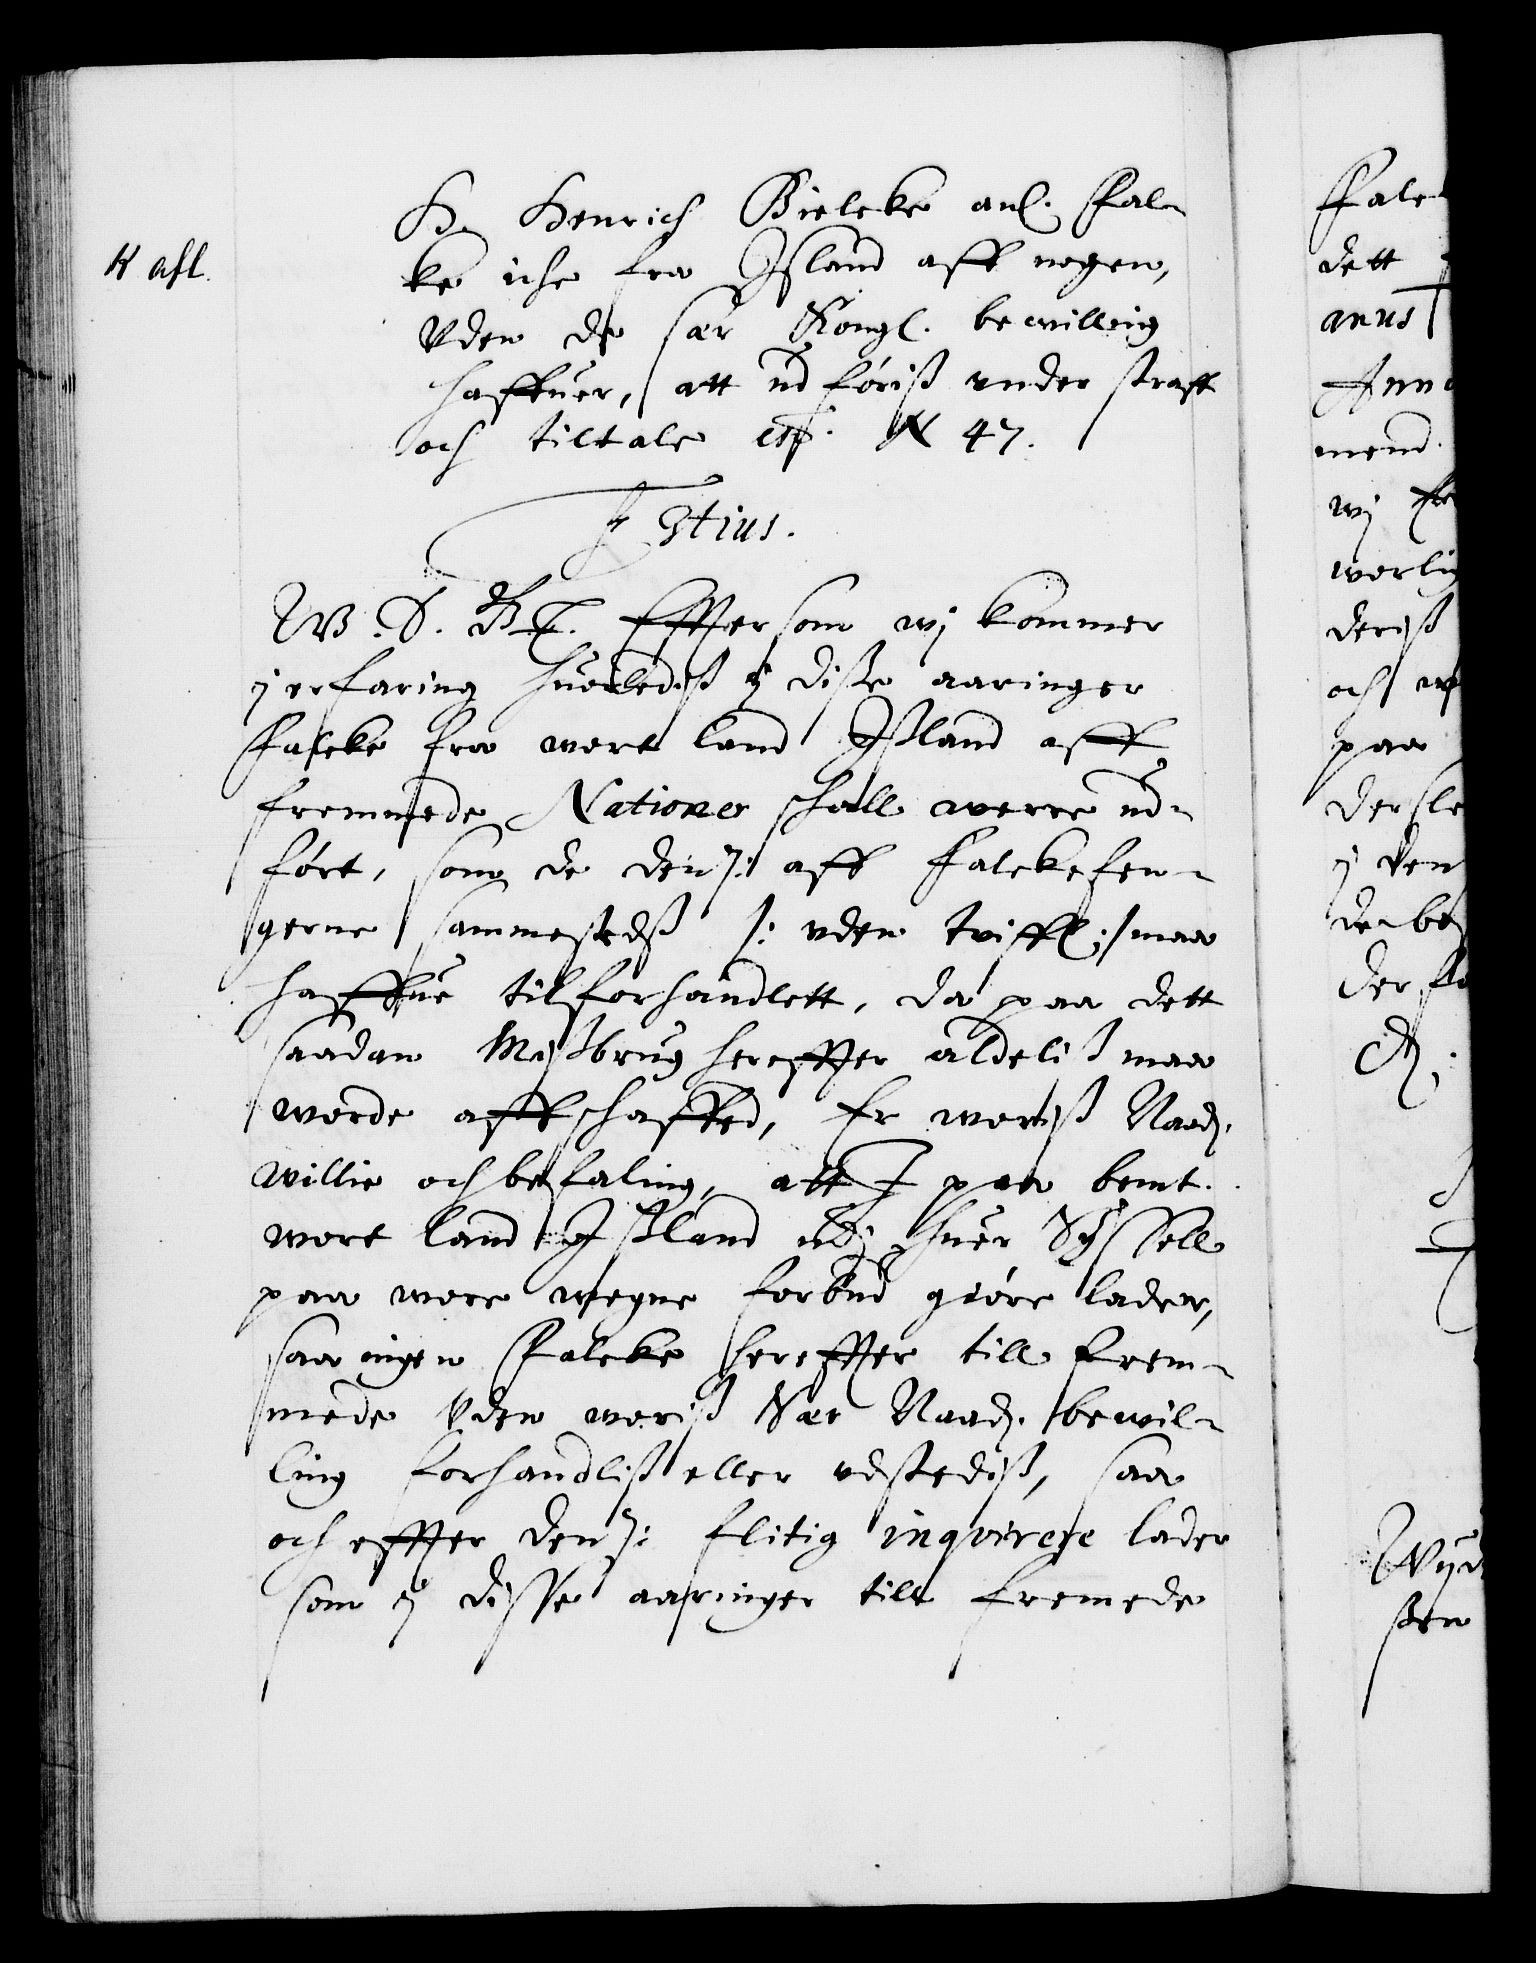 K afl.
H. Henrich Bielcke anl. Fal-
ke iche fra Island aff nogen,
Uden de sær Kongl. bewilling
haffuer, att udføriß under straff
och tiltale etc. N 47.
W. S. G. T. Effter som wj kommer
j erfaring huorlediß y disse aaringer
Falcke fra wort land Ißland aff
fremmede Nationer schall werre ud-
ført, som de denß: aff Falckefen-
gerne sammestedß /: uden tviffl :/ maa
haffue tilforhandlett, da paa dett
saadan Mißbrug hereffter aldeliß maa
worde affschaffed, Er woriß Naad.
willie och befaling, att I paa bemt.
wort land Ißland udj huer Syssell
paa wore wegne forbud giøre lader,
saa ingen Falcke hereffter till frem-
mede Uden woriß Sær Naad. bewil-
ling forhandliß eller udstediß, saa
och effter denß: flitig inqvirere lader
som y disse aaringer till fremede
Falc
dett
anus
Anno
mend.
wj
worlig
deriß
och
paa
dersle
j den
de be
ders
Wijd
sten